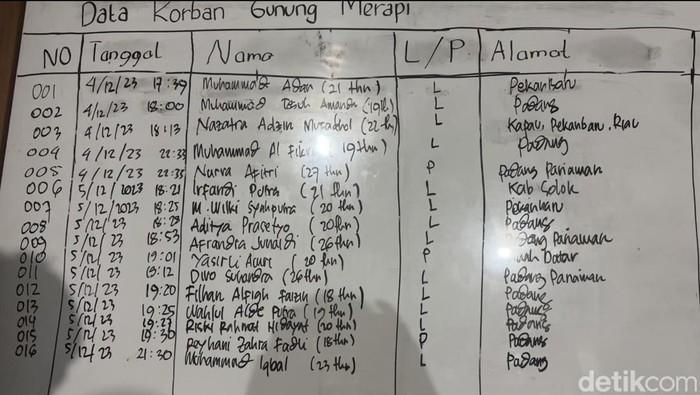 Data Korban Gunung Merapi
NO Tanggal Nama L/P Alamat
001 4/12/23 17:39 Muhammad Adan (21 thn) L Pekanbaru
002 4/12/23 18:00 Muhammad Teguh Amanda (19 th) L Padang
003 4/12/23 18:13 Nazatra Adzin Musadhol (22 th) L Kapau, Pekanbaru, Riau
004 4/12/23 22:33 Muhammad Al Fikri 19 thn) L Padang
005 4/12/23 22:35 Nurva Afitri (27 thn) P Padang Pariaman
006 5/12/2023 18:21 Irfandi Putra (21 thn) L Kab Solok
007 5/12/2023 18:25 M. Wilki Syahputra (20 thn) L Pekanbaru
008 5/12/23 18:28 Aditya Prasetyo (20thn) L Padang
009 5/12/23 18:53 Afrandra Junaidi (26thn) L Padang Pariaman
010 5/12/23 19:01 Yasirli Amri (20 thn) P Datar
011 5/12/23 19:12 Divo Suhandra (26thn) L Padang Pariaman
012 5/12/23 19:20 Filhan Alfiqh Faizin (18 thn) L Padang
013 5/12/23 19:25 Wahlul Alde Putra (19 thn) L Padang
014 5/12/23 19:27 Riski Rahmat Hidayat (20 thn) L Padang
015 5/12/23 19:30 Reyhani Zahra Fadli (18thn) P Padang
016 5/12/23 21:30 Mohammad Iqbal (23 thn) L Padang
detikcom